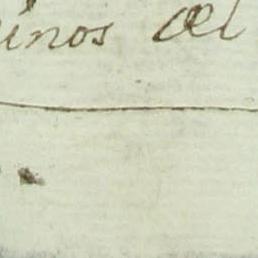 inos del